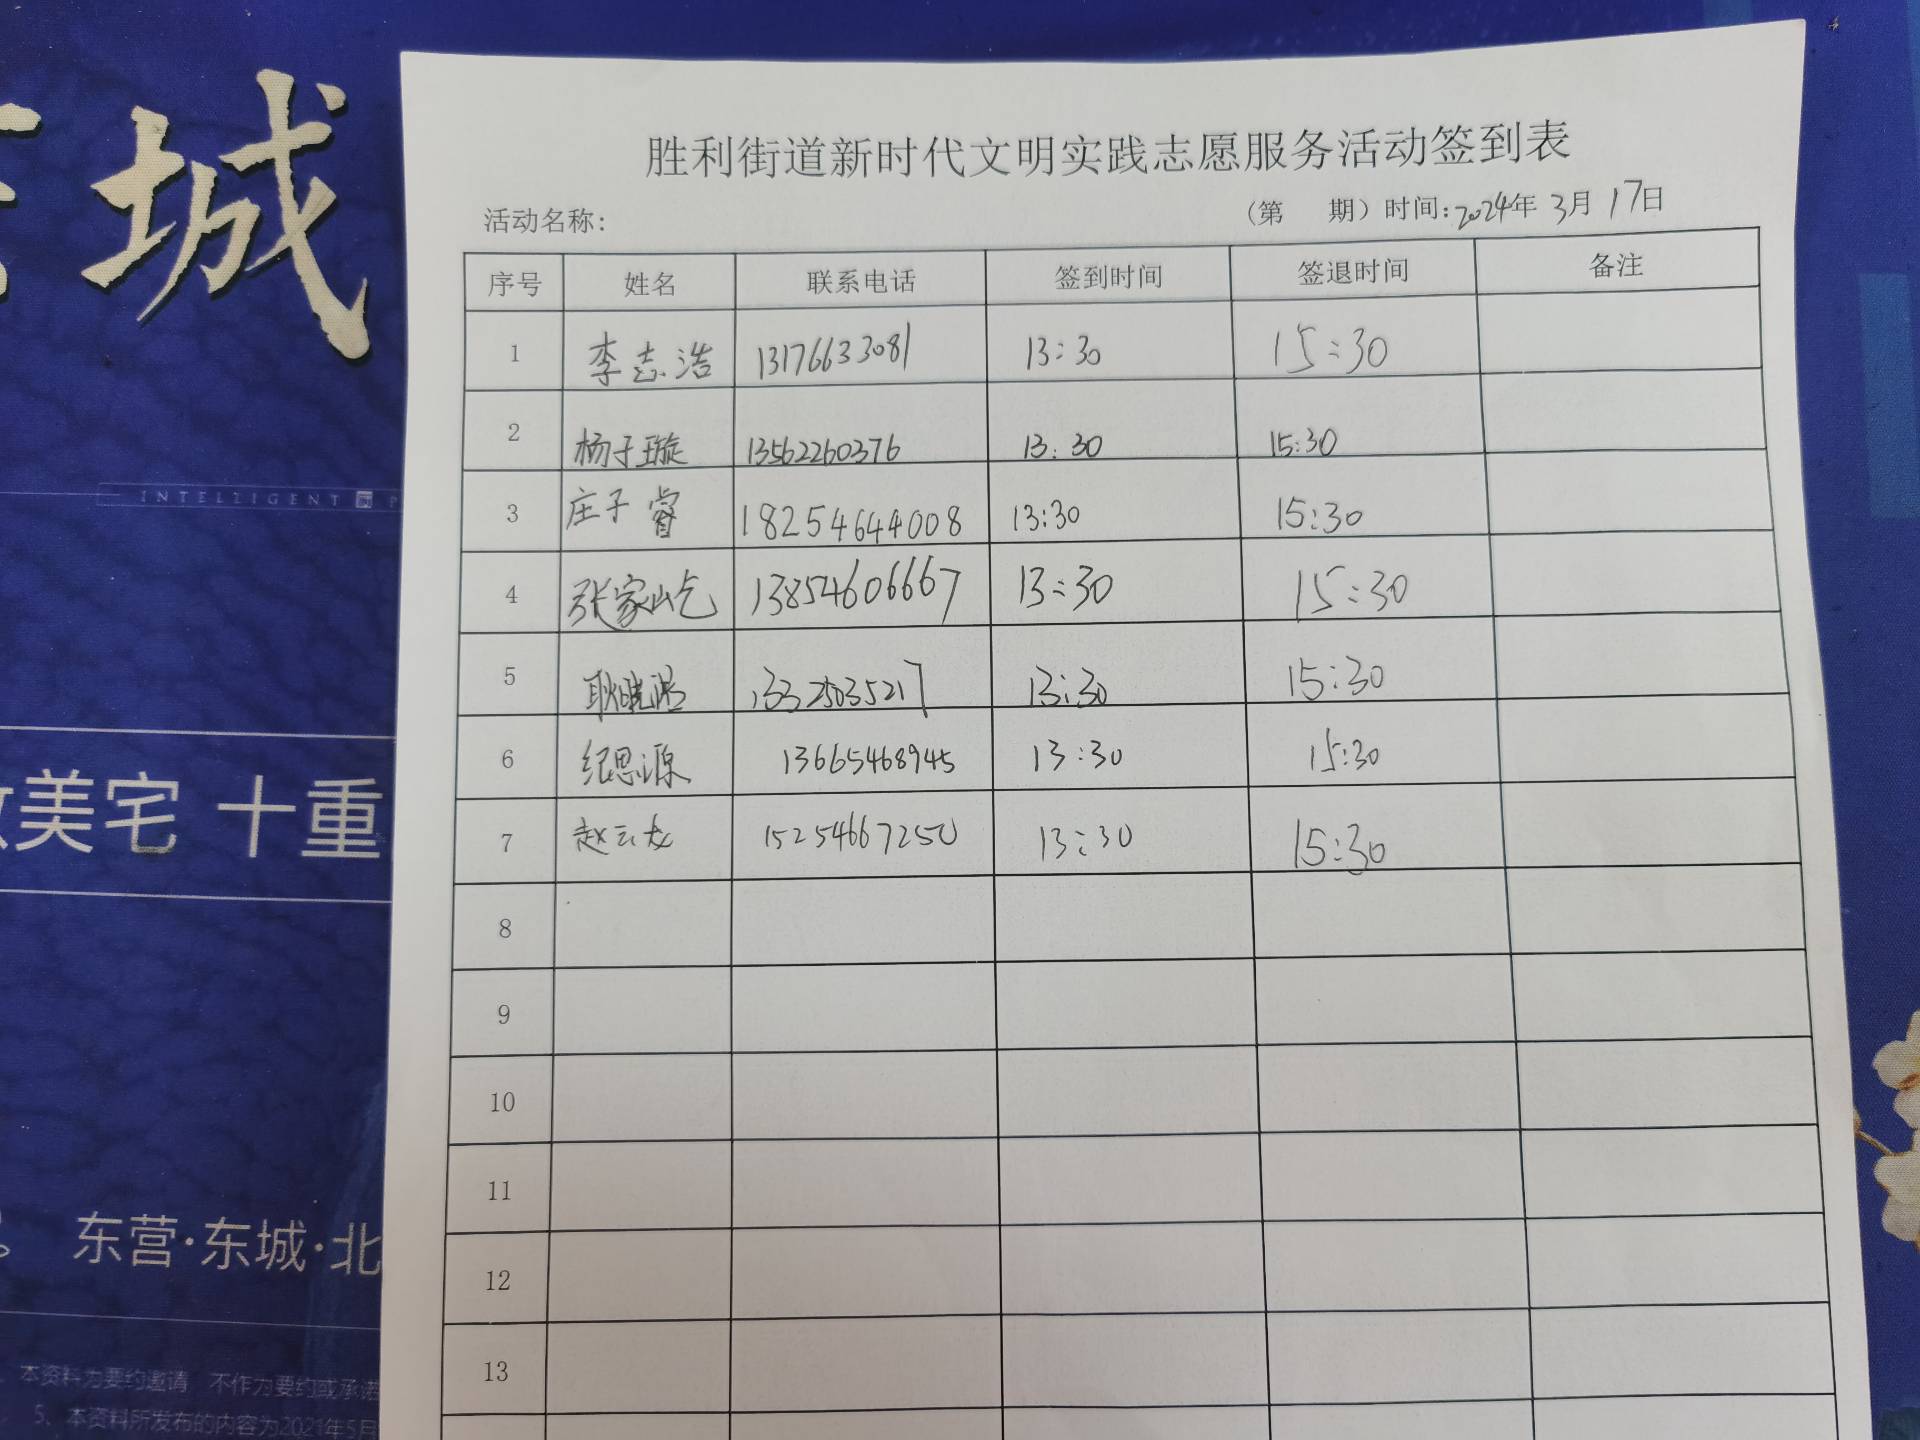 城
INTELLIGENT
美宅 十重
东营·东城·北
本资料为要约邀请 不作为要约或承诺
5、本资料所发布的内容为2021年5月
胜利街道新时代文明实践志愿服务活动签到表
活动名称: (第 期) 时间:2024年3月17日
序号 姓名 联系电话 签到时间 签退时间 备注
1 李志浩 13176633081 13:30 15:30
2 杨子璇 13562260376 13:30 15:30
3 庄子睿 18254644008 13:30 15:30
4 张家屹 13854606667 13:30 15:30
5 耿 13325035217 13:30 15:30
6 纪思源 13665468945 13:30 15:30
7 赵云龙 15254667250 13:30 15:30
8
9
10
11
12
13